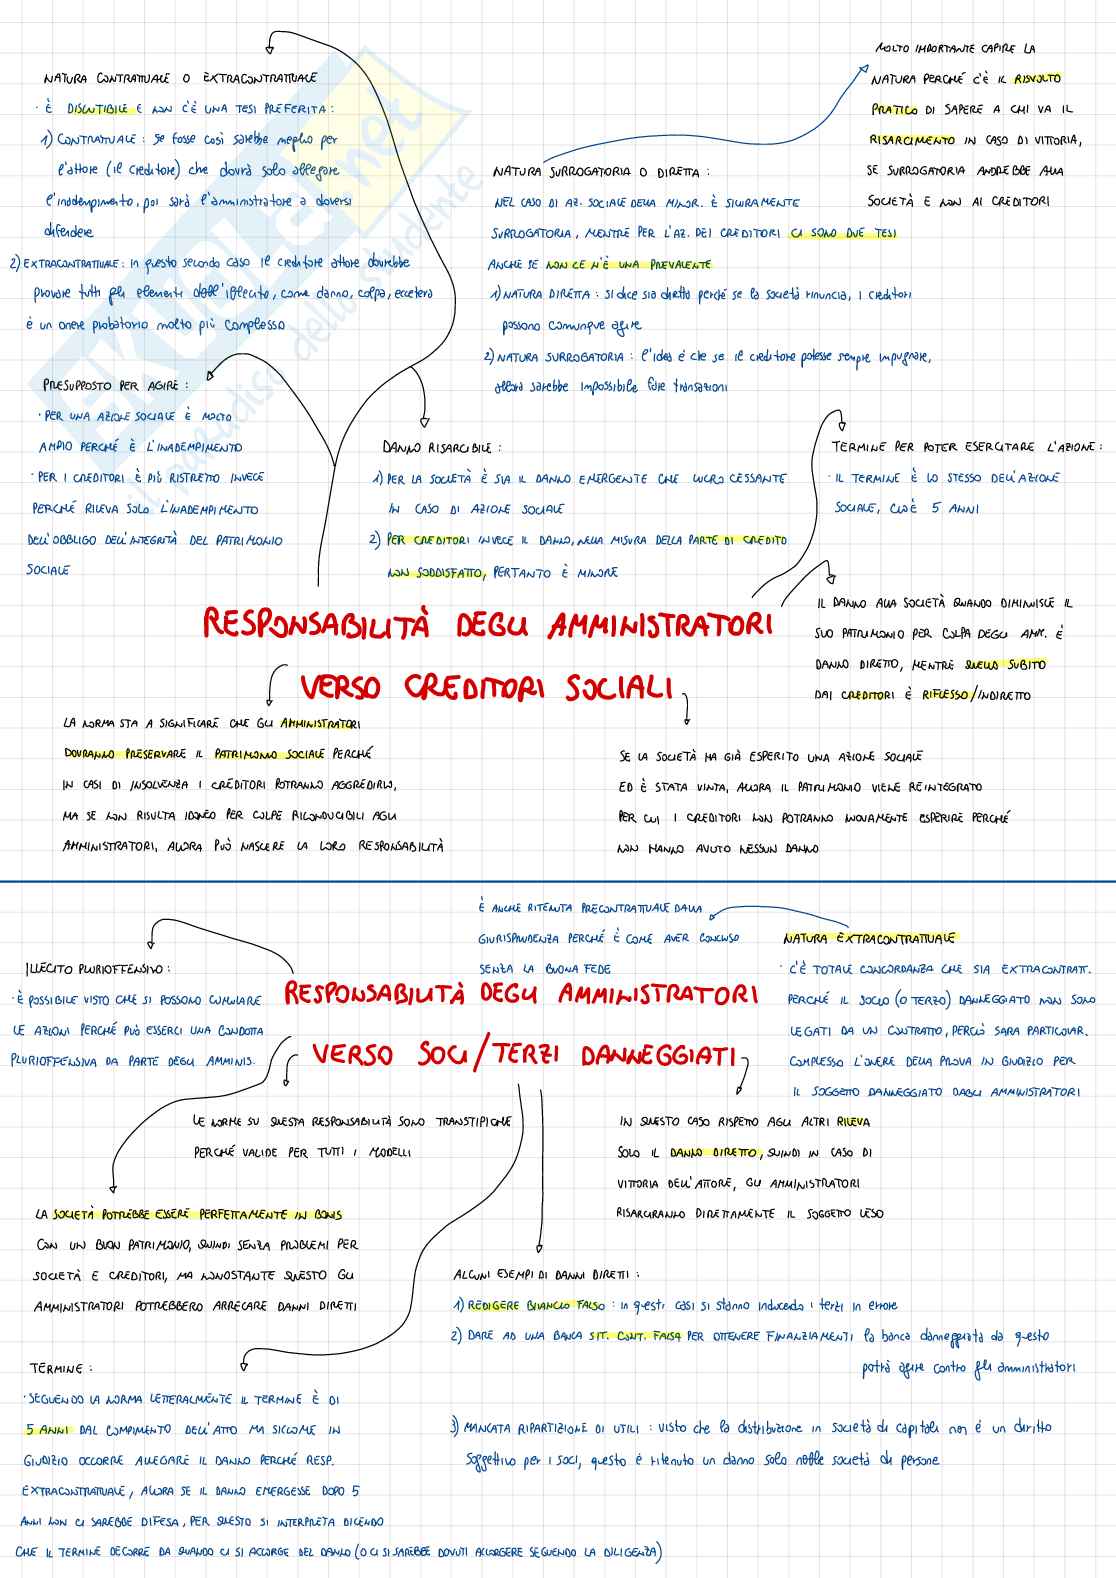 NATURA CONTRATTUALE O EXTRACONTRATTUALE
· È DISCUTIBILE E NON C'È UNA TESI PREFERITA:
1) CONTRATTUALE: se fosse così sarebbe meglio per
l'attore (il creditore) che dovrà solo allegare
l'inadempimento, poi sarà l'amministratore a doversi
difendere
2) EXTRACONTRATTUALE: in questo secondo caso il creditore attore dovrebbe
provare tutti gli elementi dell'illecito, come danno, colpa, eccetera
è un onere probatorio molto più complesso
MOLTO IMPORTANTE CAPIRE LA
NATURA PERCHÉ C'È IL RISVOLTO
PRATICO DI SAPERE A CHI VA IL
RISARCIMENTO IN CASO DI VITTORIA,
SE SURROGATORIA ANDREBBE ALLA
SOCIETÀ E NON AI CREDITORI
NATURA SURROGATORIA O DIRETTA:
NEL CASO DI AZ. SOCIALE DELLA MINOR. È SICURAMENTE
SURROGATORIA, MENTRE PER L'AZ. DEI CREDITORI CI SONO DUE TESI
ANCHE SE NON CE N'È UNA PREVALENTE
1) NATURA DIRETTA: si dice sia diretta perché se la società rinuncia, i creditori
possono comunque agire
2) NATURA SURROGATORIA: l'idea è che se il creditore potesse sempre impugnare,
allora sarebbe impossibile fare transazioni
PRESUPPOSTO PER AGIRE:
· PER UNA AZIONE SOCIALE È MOLTO
AMPIO PERCHÉ È L'INADEMPIMENTO
· PER I CREDITORI È PIÙ RISTRETTO INVECE
PERCHÉ RILEVA SOLO L'INADEMPIMENTO
DELL'OBBLIGO DELL'INTEGRITÀ DEL PATRIMONIO
SOCIALE
DANNO RISARCIBILE:
1) PER LA SOCIETÀ È SIA IL DANNO EMERGENTE CHE LUCRO CESSANTE
IN CASO DI AZIONE SOCIALE
2) PER CREDITORI INVECE IL DANNO, NELLA MISURA DELLA PARTE DI CREDITO
NON SODDISFATTO, PERTANTO È MINORE
TERMINE PER POTER ESERCITARE L'AZIONE:
· IL TERMINE È LO STESSO DELL'AZIONE
SOCIALE, CIOÈ 5 ANNI
IL DANNO ALLA SOCIETÀ QUANDO DIMINUISCE IL
SUO PATRIMONIO PER COLPA DEGLI AMM. È
DANNO DIRETTO, MENTRE QUELLO SUBITO
DAI CREDITORI È RIFLESSO/INDIRETTO
RESPONSABILITÀ DEGLI AMMINISTRATORI
VERSO CREDITORI SOCIALI
LA NORMA STA A SIGNIFICARE CHE GLI AMMINISTRATORI
DOVRANNO PRESERVARE IL PATRIMONIO SOCIALE PERCHÉ
IN CASI DI INSOLVENZA I CREDITORI POTRANNO AGGREDIRLO,
MA SE NON RISULTA IDONEO PER COLPE RICONDUCIBILI AGLI
AMMINISTRATORI, ALLORA PUÒ NASCERE LA LORO RESPONSABILITÀ
SE LA SOCIETÀ HA GIÀ ESPERITO UNA AZIONE SOCIALE
ED È STATA VINTA, ALLORA IL PATRIMONIO VIENE REINTEGRATO
PER CUI I CREDITORI NON POTRANNO NUOVAMENTE ESPERIRE PERCHÉ
NON HANNO AVUTO NESSUN DANNO
È ANCHE RITENUTA PRECONTRATTUALE DALLA
GIURISPRUDENZA PERCHÉ È COME AVER CONCLUSO
SENZA LA BUONA FEDE
NATURA EXTRACONTRATTUALE
· C'È TOTALE CONCORDANZA CHE SIA EXTRACONTRATT.
PERCHÉ IL SOCIO (O TERZO) DANNEGGIATO NON SONO
LEGATI DA UN CONTRATTO, PERCIÒ SARÀ PARTICOLAR.
COMPLESSO L'ONERE DELLA PROVA IN GIUDIZIO PER
IL SOGGETTO DANNEGGIATO DAGLI AMMINISTRATORI
ILLECITO PLURIOFFENSIVO:
· È POSSIBILE VISTO CHE SI POSSONO CUMULARE
LE AZIONI PERCHÉ PUÒ ESSERCI UNA CONDOTTA
PLURIOFFENSIVA DA PARTE DEGLI AMMINIS.
RESPONSABILITÀ DEGLI AMMINISTRATORI
VERSO SOCI/TERZI DANNEGGIATI
LE NORME SU QUESTA RESPONSABILITÀ SONO TRANSTIPICHE
PERCHÉ VALIDE PER TUTTI I MODELLI
IN QUESTO CASO RISPETTO AGLI ALTRI RILEVA
SOLO IL DANNO DIRETTO, QUINDI IN CASO DI
VITTORIA DELL'ATTORE, GLI AMMINISTRATORI
RISARCIRANNO DIRETTAMENTE IL SOGGETTO LESO
LA SOCIETÀ POTREBBE ESSERE PERFETTAMENTE IN BONIS
CON UN BUON PATRIMONIO, QUINDI SENZA PROBLEMI PER
SOCIETÀ E CREDITORI, MA NONOSTANTE QUESTO GLI
AMMINISTRATORI POTREBBERO ARRECARE DANNI DIRETTI
ALCUNI ESEMPI DI DANNI DIRETTI:
1) REDIGERE BILANCIO FALSO: in questi casi si stanno inducendo i terzi in errore
2) DARE AD UNA BANCA SIT. CONT. FALSA PER OTTENERE FINANZIAMENTI la banca danneggiata da questo
potrà agire contro gli amministratori
3) MANCATA RIPARTIZIONE DI UTILI: visto che la distribuzione in società di capitali non è un diritto
soggettivo per i soci, questo è ritenuto un danno solo nelle società di persone
TERMINE:
· SEGUENDO LA NORMA LETTERALMENTE IL TERMINE È DI
5 ANNI DAL COMPIMENTO DELL'ATTO MA SICCOME IN
GIUDIZIO OCCORRE ALLEGARE IL DANNO PERCHÉ RESP.
EXTRACONTRATTUALE, ALLORA SE IL DANNO EMERGESSE DOPO 5
ANNI NON CI SAREBBE DIFESA, PER QUESTO SI INTERPRETA DICENDO
CHE IL TERMINE DECORRE DA QUANDO CI SI ACCORGE DEL DANNO (O CI SI SAREBBE DOVUTI ACCORGERE SEGUENDO LA DILIGENZA)
SKUOLA.net
il paradiso dello studente